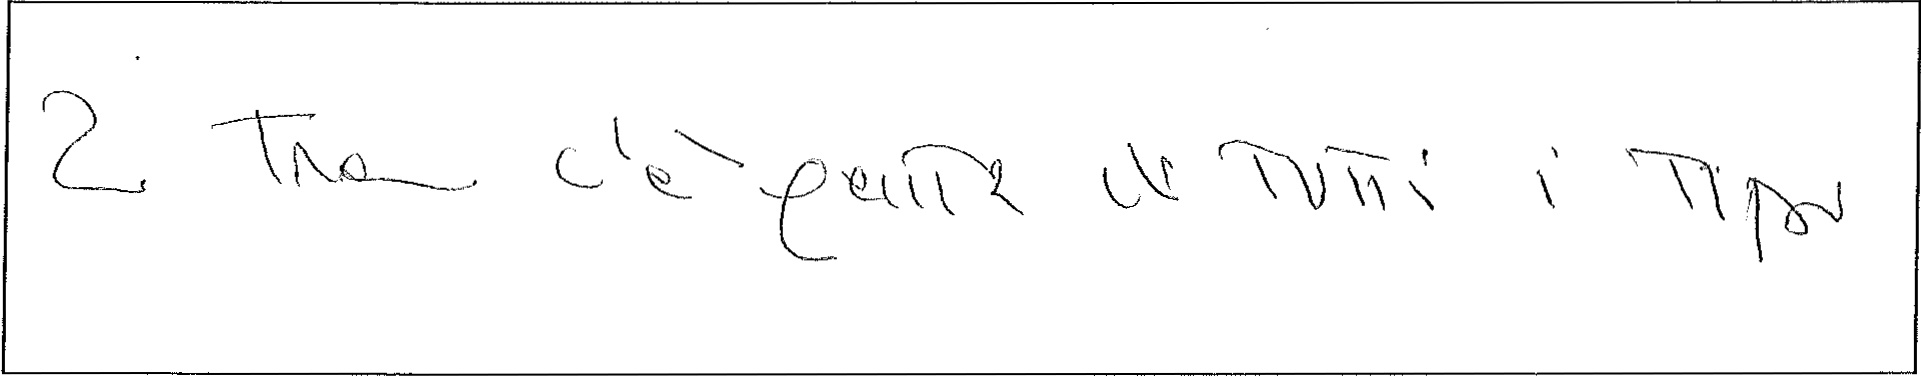 2 Tram c'è gente di tutti i tipi